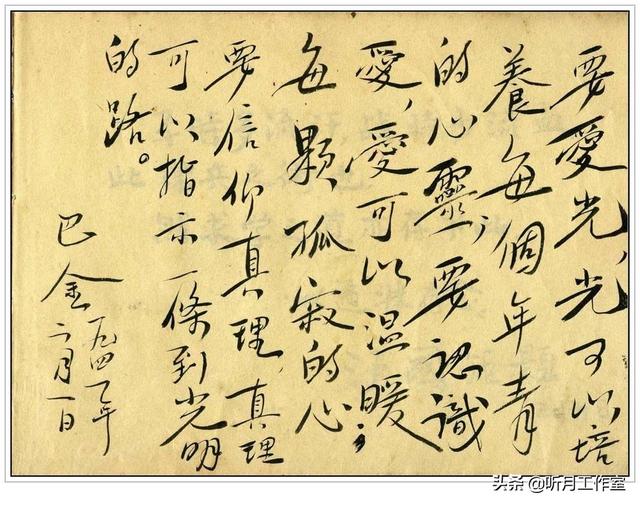 要愛光,光可以培
養每個年青
的心靈,要認識
愛,愛可以温暖
每顆孤寂的心;
要信仰真理,真理
可以指示一條到光明
的路。
巴金
一九四一年
月一日
头条 @听月工作室